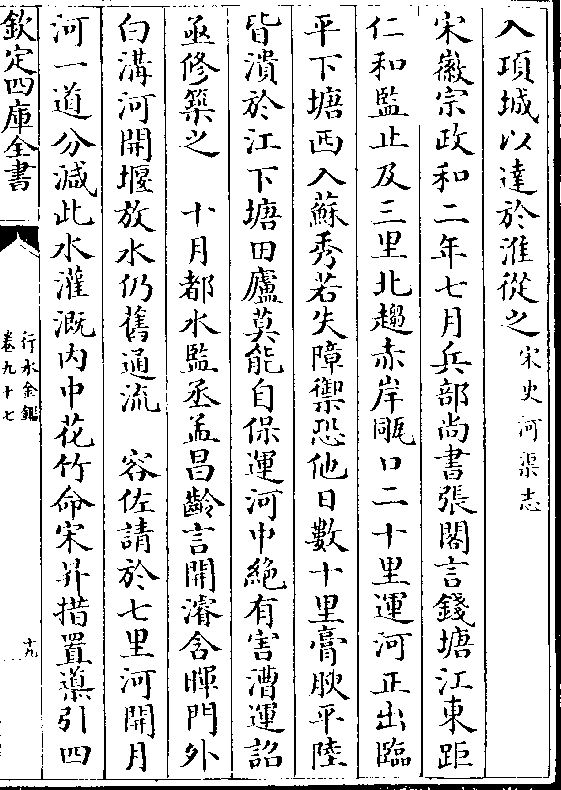 入項城以達於淮從之宋史河渠志
宋徽宗政和二年七月兵部尚書張閣言錢塘江東距
仁和監止及三里北趨赤岸㼚口二十里運河正出臨
平下塘西入蘇秀若失障禦恐他日數十里膏腴平陸
皆潰於江下塘田廬莫能自保運河中絶有害漕運詔
亟修築之　十月都水監丞孟昌齡言開濬含暉門外
白溝河開堰放水仍舊通流　容佐請於七里河開月
河一道分減此水灌溉内中花竹命宋昇措置導引四
欽定四庫全書
行水金鑑
卷九十七
十九